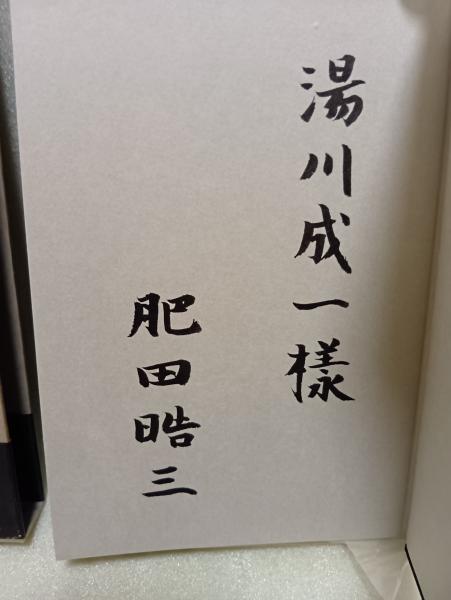 湯川成一様
肥田晧三